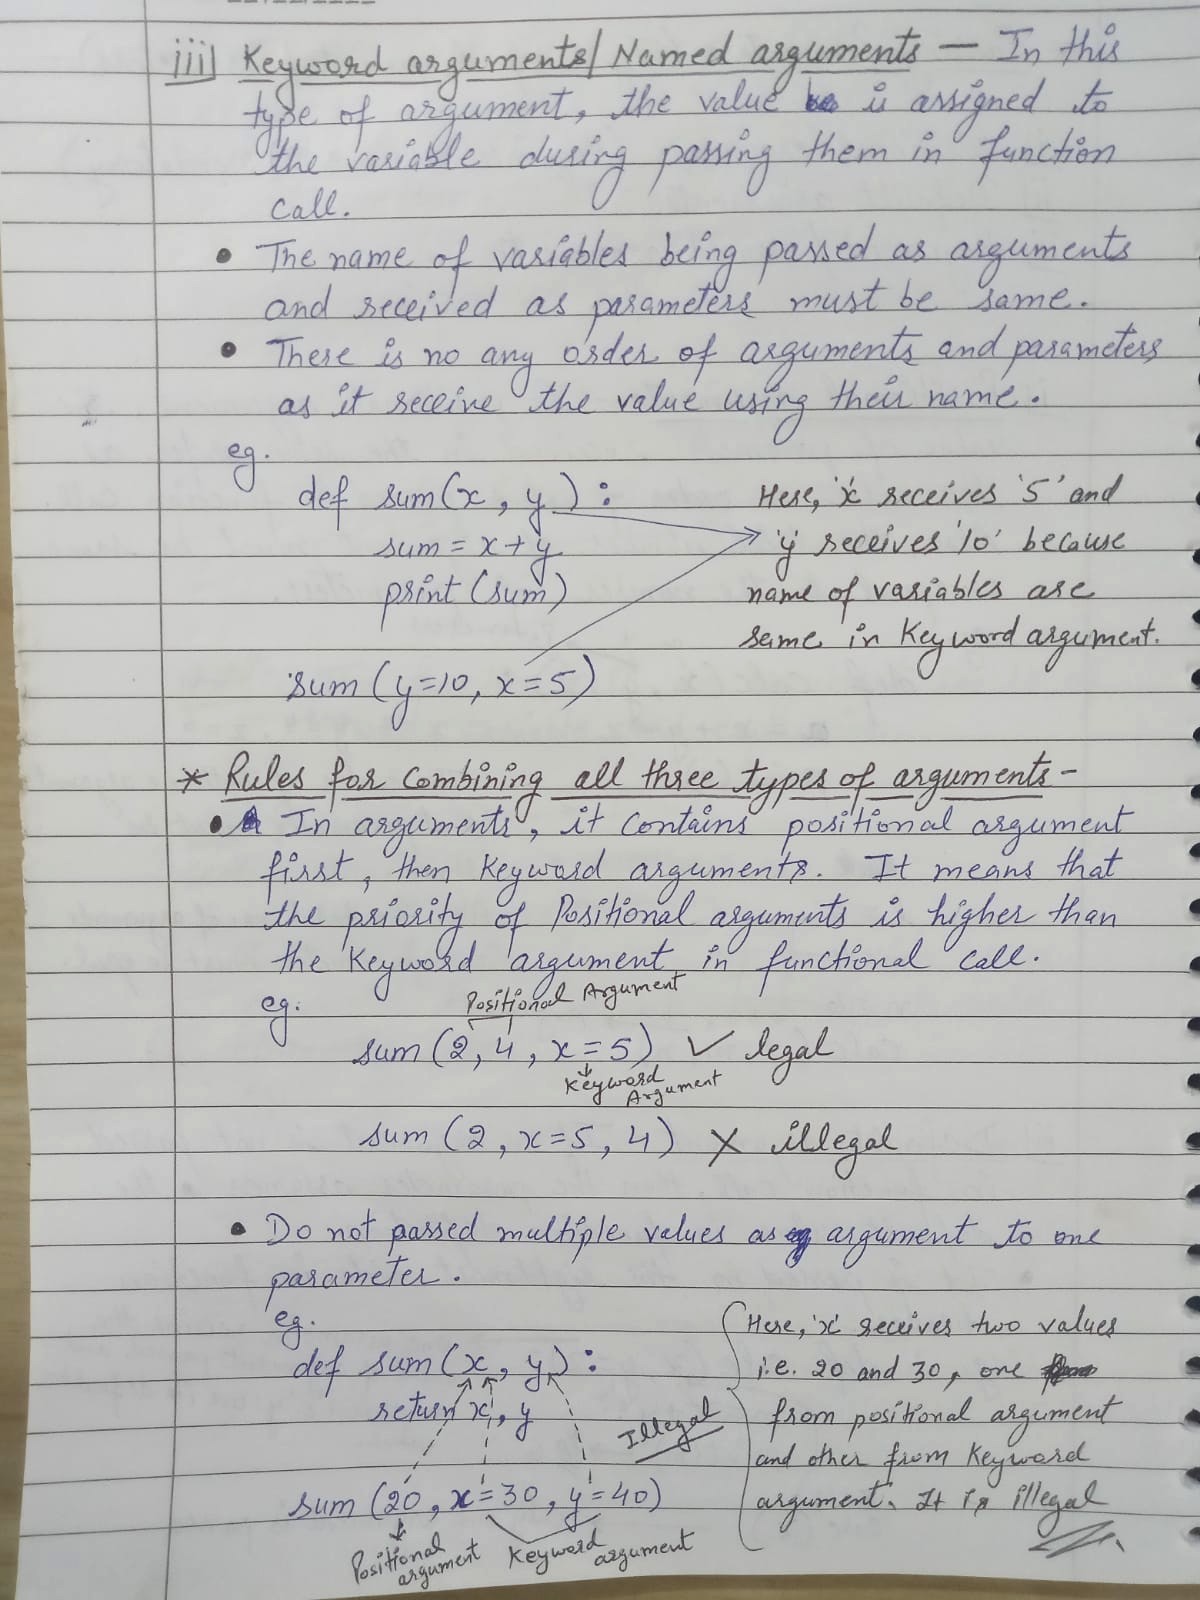 iii) Keyword arguments/Named arguments — In this
type of argument, the value is assigned to
the variable during passing them in function
call.
• The name of variables being passed as arguments
and received as parameters must be same.
• There is no any order of arguments and parameters
as it receive the value using their name.
eg.
def sum(x, y):
sum = x+y
print (sum)
sum (y=10, x=5)
Here, 'x' receives '5' and
'y' receives '10' because
name of variables are
same in Keyword argument.
* Rules for Combining all three types of arguments -
• In arguments, it contains positional argument
first, then Keyword arguments. It means that
the priority of Positional arguments is higher than
the Keyword argument in functional call.
eg.
Positional Argument
sum (2, 4, x=5) ✓ legal
Keyword
Argument
sum (2, x=5, 4) X illegal
• Do not passed multiple values as argument to one
parameter.
eg.
def sum(x, y):
return x, y
Illegal
sum (20, x=30, y=40)
Positional
argument
Keyword
argument
Here, 'x' receives two values
i.e. 20 and 30, one
from positional argument
and other from Keyword
argument. It is illegal